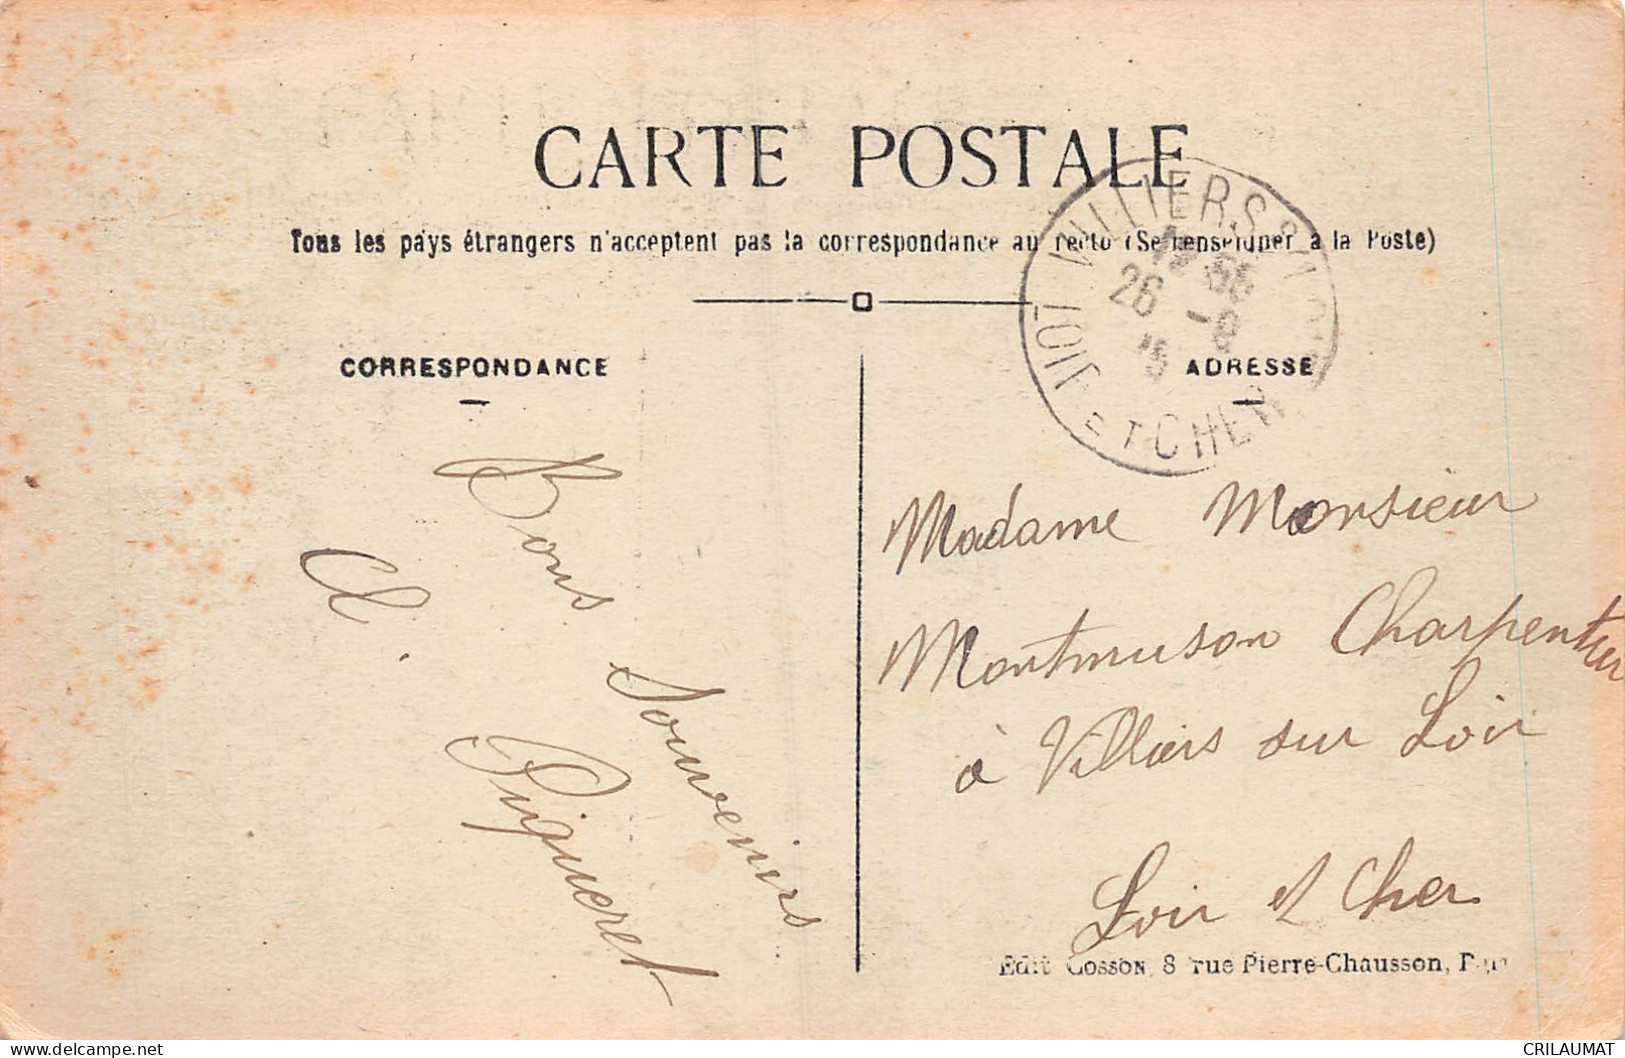 CARTE POSTALE
Tous les pays étrangers n'acceptent pas la correspondance au recto (Se renseigner à la Poste)
VILLIERS S
LOIR ET CHER
26 -9
15
CORRESPONDANCE
ADRESSE
Bons Souvenirs
Cl. Piqueret
Madame Monsieur
Montmuson Charpentier
à Villiers sur Loir
Loir et Cher
Edit Cosson 8 rue Pierre-Chausson, Paris
CRILAUMAT